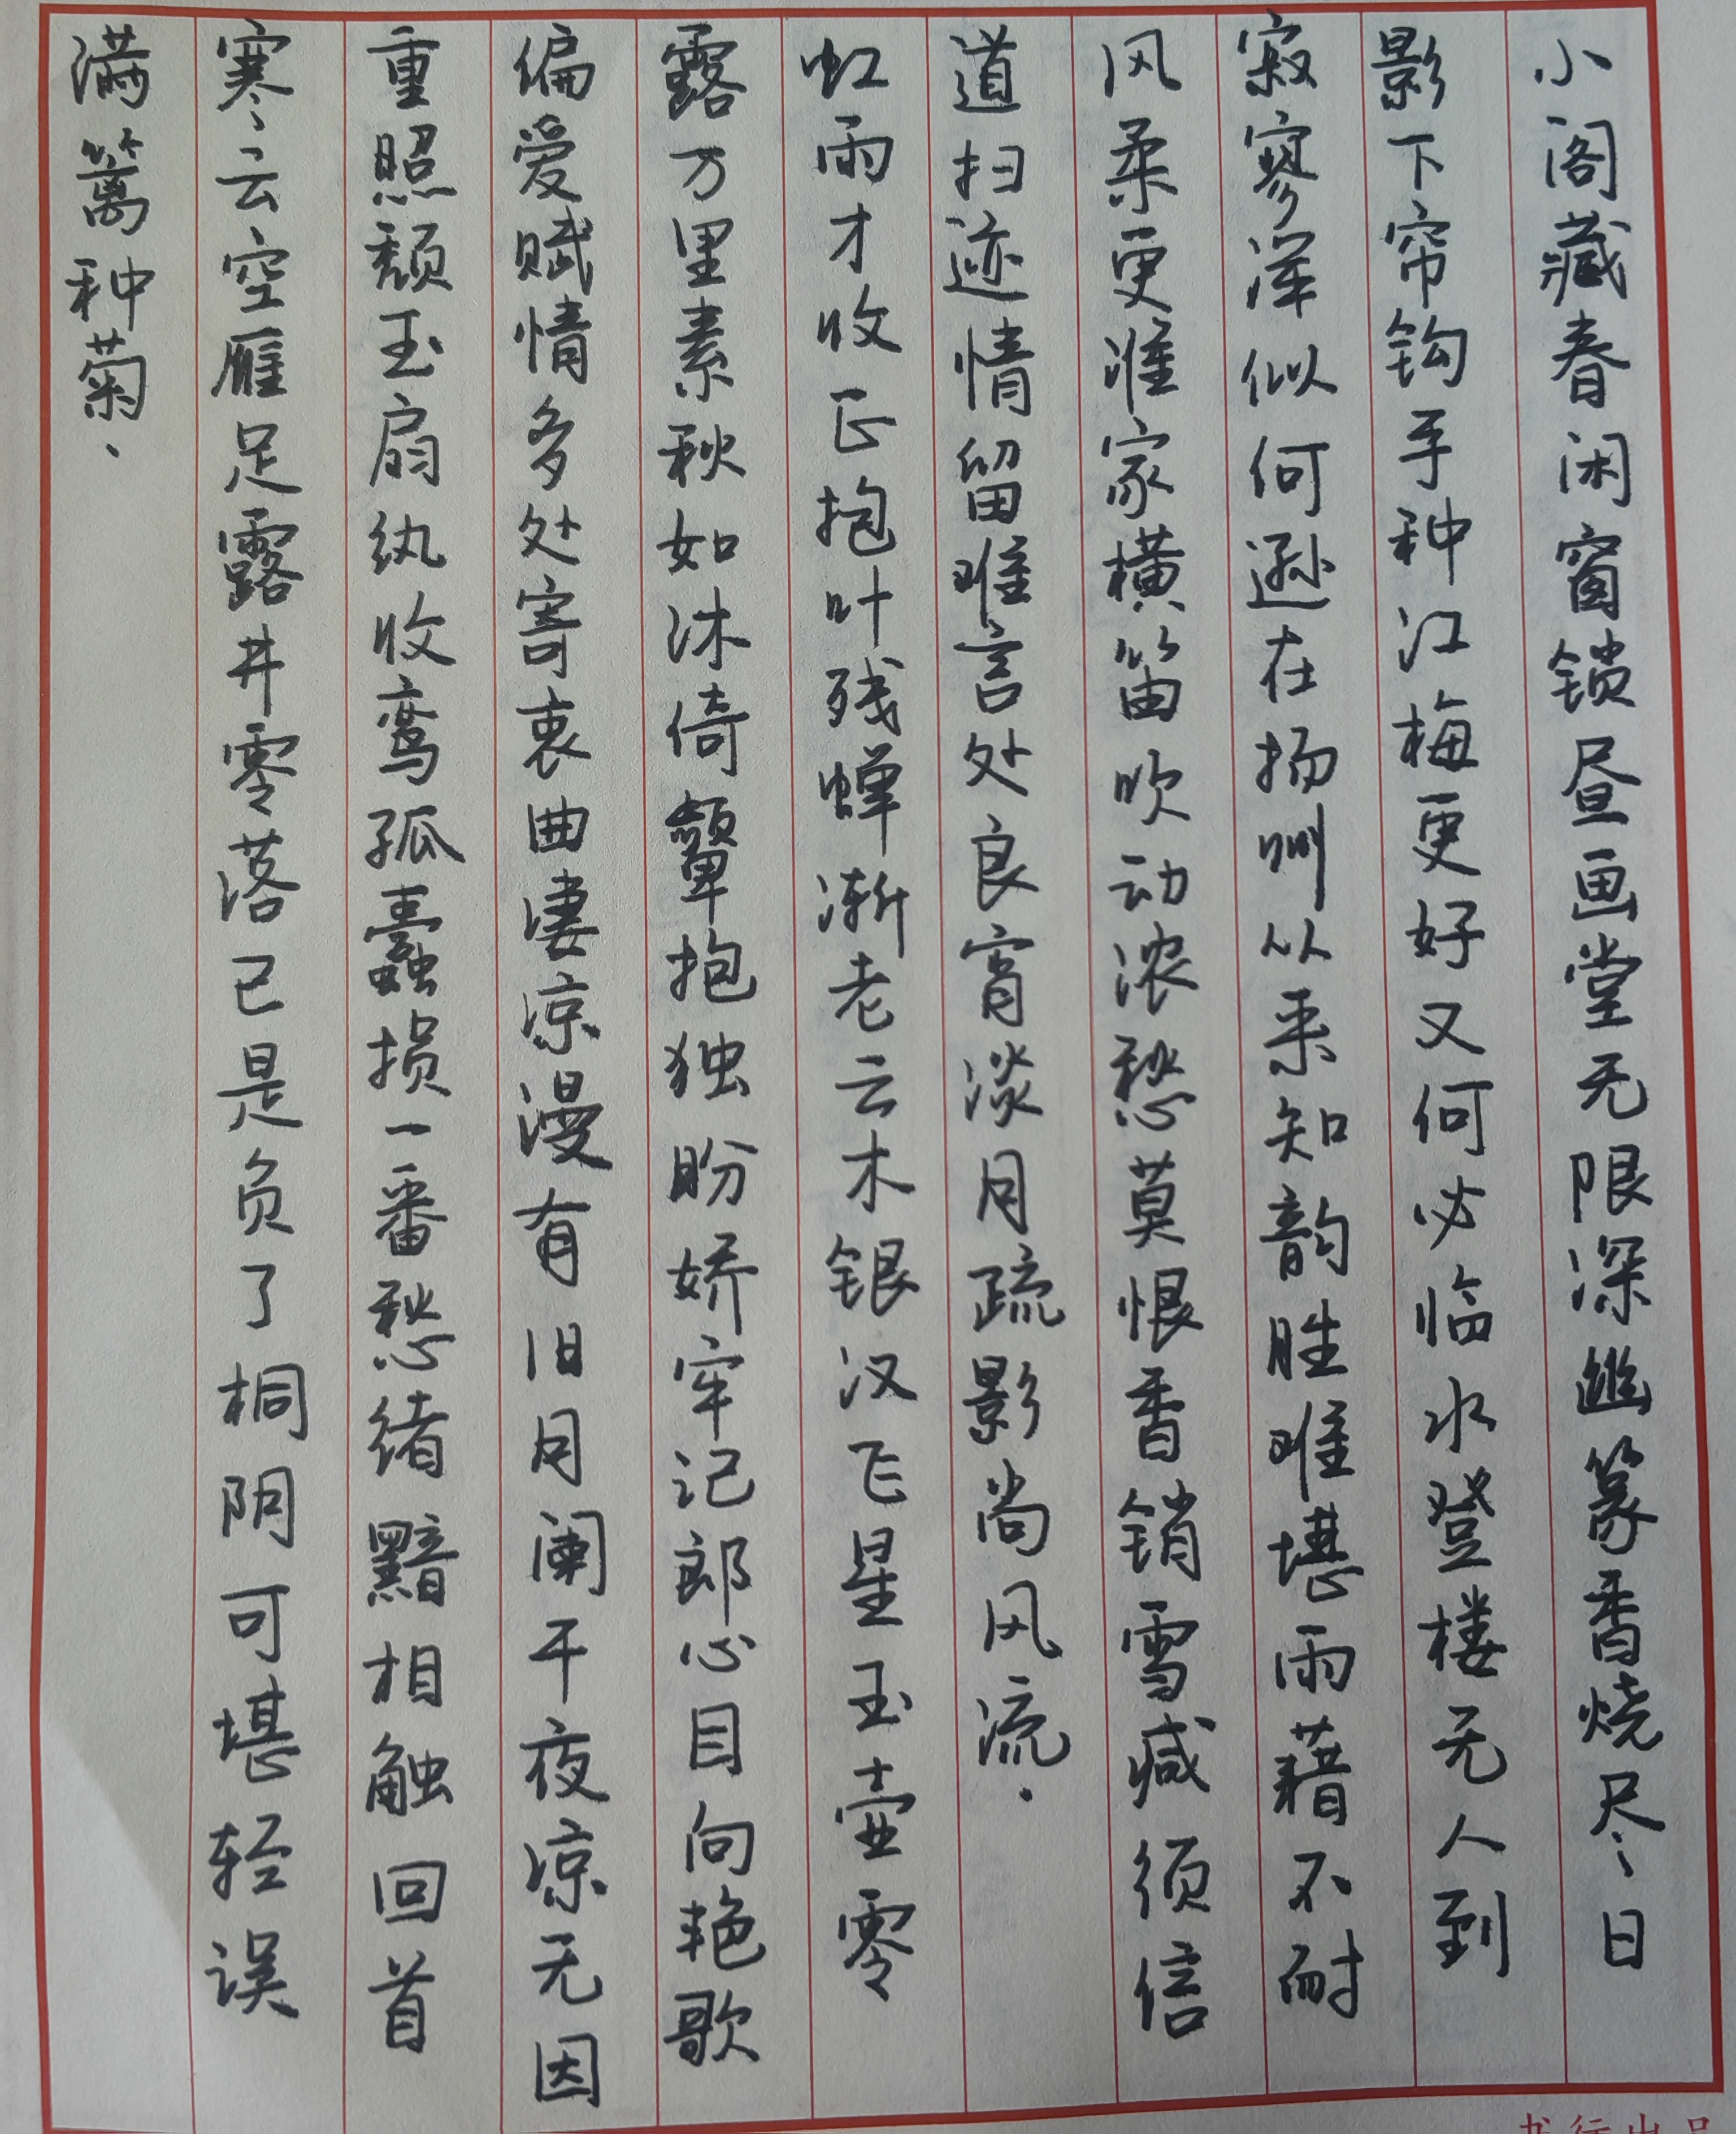 小阁藏春闲窗锁昼画堂无限深幽篆香烧尽日
影下帘钩手种江梅更好又何必临水登楼无人到
寂寥浑似何逊在扬州从来知韵胜难堪雨藉不耐
风柔更谁家横笛吹动浓愁莫恨香销雪减须信
道扫迹情留难言处良宵淡月疏影尚风流.
虹雨才收正抱叶残蝉渐老云木银汉飞星玉壶零
露万里素秋如沐倚颦抱独盼娇牢记郎心目向艳歌
偏爱赋情多处寄衷曲凄凉漫有旧月阑干夜凉无因
重照颓玉扇纨收鸾孤蠹损一番愁绪黯相触回首
寒云空雁足露井零落已是负了桐阴可堪轻误
满篱种菊.